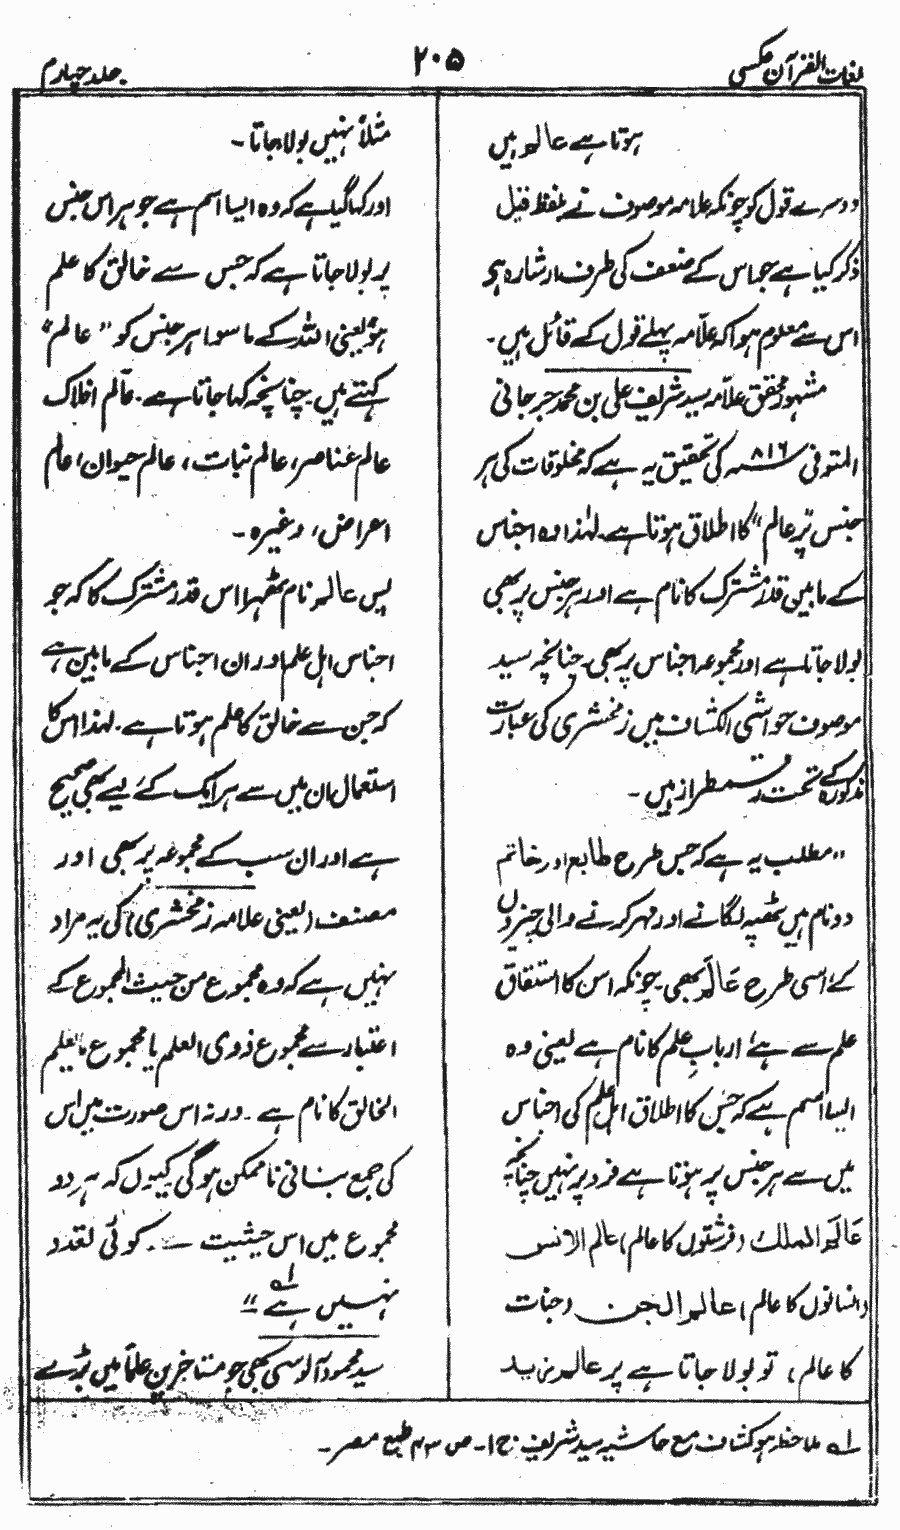 لغات القرآن عکسی
۲۰۵
جلد چہارم
ہوتا ہے عالم ہیں
دوسرے قول کو چونکہ علامہ موصوف نے بلفظ قیل
ذکر کیا ہے جو اس کے ضعف کی طرف اشارہ ہے
اس سے معلوم ہوا کہ علّامہ پہلے قول کے قائل ہیں۔
مشہور محقق علّامہ سید شریف علی بن محمد جرجانی
المتوفی ۸۱۶ھ کی تحقیق یہ ہے کہ مخلوقات کی ہر
جنس پر "عالم" کا اطلاق ہوتا ہے۔ لہٰذا وہ اجناس
کے مابین قدر مشترک کا نام ہے اور ہر جنس پر بھی
بولا جاتا ہے اور مجموعہ اجناس پر بھی۔ چنانچہ سید
موصوف حواشی الکشاف میں زمخشری کی عبارت
مذکورہ کے تحت رقمطراز ہیں۔
"مطلب یہ ہے کہ جس طرح طابع اور خاتم
دو نام ہیں ٹھپہ لگانے اور مہر کرنے والی چیزوں
کے اسی طرح عَالَم بھی۔ چونکہ اس کا اشتقاق
علم سے ہے اربابِ علم کا نام ہے یعنی وہ
ایسا اسم ہے کہ جس کا اطلاق اہل علم کی اجناس
میں سے ہر جنس پر ہوتا ہے فرد پر نہیں چنانچہ
عَالَمُ الملك (فرشتوں کا عالم) عالم الانس
(انسانوں کا عالم) عالم الجن (جنات
کا عالم) تو بولا جاتا ہے پر عالم زید
مثلاً نہیں بولا جاتا۔
اور کہا گیا ہے کہ وہ ایسا اسم ہے جو ہر اس جنس
پر بولا جاتا ہے کہ جس سے خالق کا علم
ہو یعنی اللہ کے ماسوا ہر جنس کو "عالم"
کہتے ہیں۔ چنانچہ کہا جاتا ہے۔ عالم افلاک
عالم عناصر، عالم نبات، عالم حیوان، عالم
اعراض، وغیرہ۔
پس عالم نام ٹھہرا اس قدر مشترک کا کہ جو
اجناس اہل علم اور ان اجناس کے مابین ہے
کہ جن سے خالق کا علم ہوتا ہے۔ لہذا اس کا
استعمال ان میں سے ہر ایک کے لیے بھی صحیح
ہے اور ان سب کے مجموعہ پر بھی اور
مصنف (یعنی علامہ زمخشری) کی یہ مراد
نہیں ہے کہ وہ مجموع من حیث المجموع کے
اعتبار سے مجموع ذوی العلم یا مجموع مایعلم
بہ الخالق کا نام ہے۔ ورنہ اس صورت میں اس
کی جمع بنانی نا ممکن ہوگی کیوں کہ ہر دو
مجموع میں اس حیثیت سے کوئی تعدد
نہیں ہے لہ"
سید محمود آلوسی بھی جو متاخرین علما میں بڑے
لہ ملاحظہ ہو کشاف مع حاشیہ سید شریف ج ۱۔ ص ۴۳ طبع مصر۔